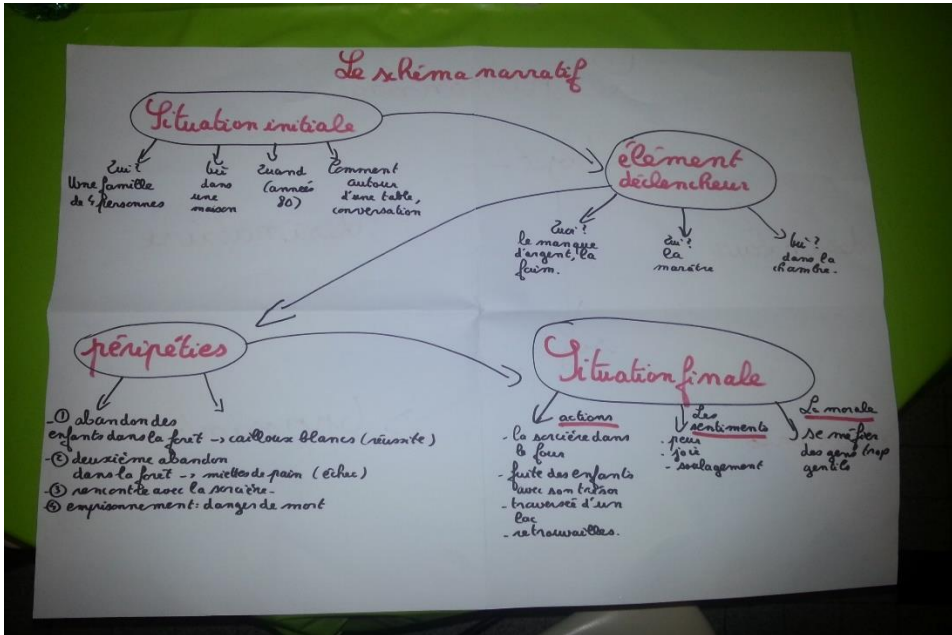 Le schéma narratif
Situation initiale
Qui?
Une famille
de 4 personnes
Où
dans
une
maison
Quand
(années
80)
Comment
autour
d'une table,
conversation
élément
déclencheur
Quoi?
le manque
d'argent, la
faim.
Qui?
la
marâtre
Où?
dans la
chambre.
péripéties
-① abandon des
enfants dans la forêt → cailloux blancs (réussite)
-② deuxième abandon
dans la forêt → miettes de pain (échec)
-③ rencontre avec la sorcière.
④ emprisonnement: danger de mort
Situation finale
actions
- la sorcière dans
le four
- fuite des enfants
avec son trésor
- traversée d'un
lac
- retrouvailles.
Les
sentiments
- peur
- joie
- soulagement
La morale
se méfier
des gens trop
gentils